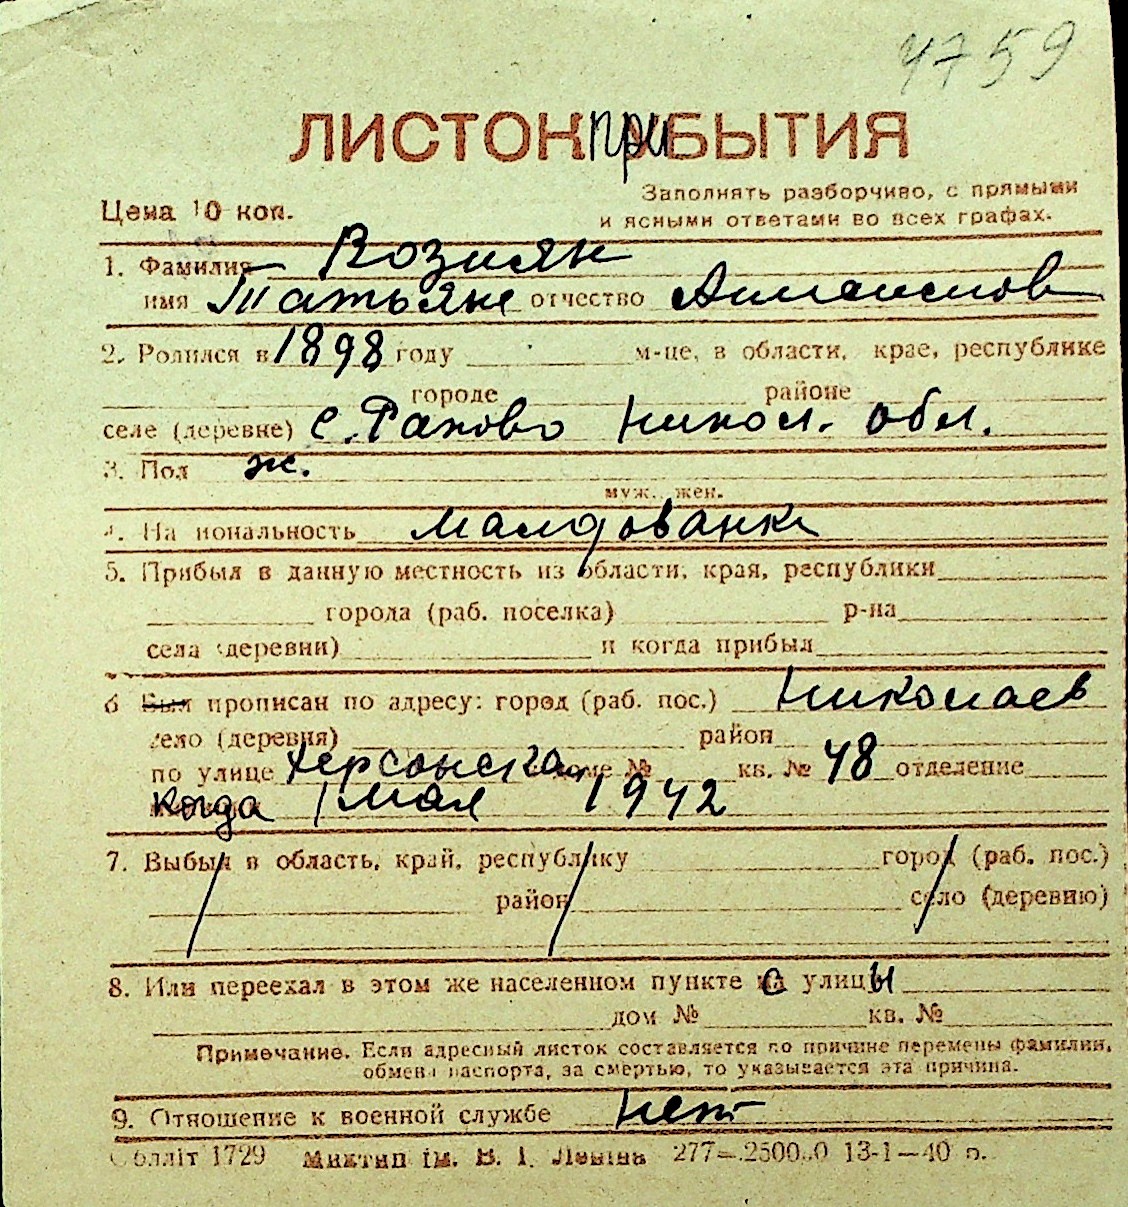 4759
ЛИСТОК при БЫТИЯ
Цена 10 коп.
Заполнять разборчиво, с прямыми
и ясными ответами во всех графах.
1. Фамилия Возиян
имя Татьяна отчество
2. Родился в 1898 году м-це, в области, крае, республике
городе районе
селе (деревне) с. Раково Никол. обл.
3. Пол ж.
муж. жен.
4. Национальность малдованка
5. Прибыл в данную местность из области, края, республики
города (раб. поселка) р-на
села (деревни) и когда прибыл
6 Был прописан по адресу: город (раб. пос.) Николаев
село (деревня) район
по улице Херсонска доме № кв. № 48 отделение
Когда 1 мая 1942
7. Выбыл в область, край, республику город (раб. пос.)
район село (деревню)
8. Или переехал в этом же населенном пункте с улицы
дом № кв. №
Примечание. Если адресный листок составляется по причине перемены фамилии,
обмена паспорта, за смертью, то указывается эта причина.
9. Отношение к военной службе нет
Облліт 1729 Миктип ім. В. І. Леніна 277— 13-1—40 р.